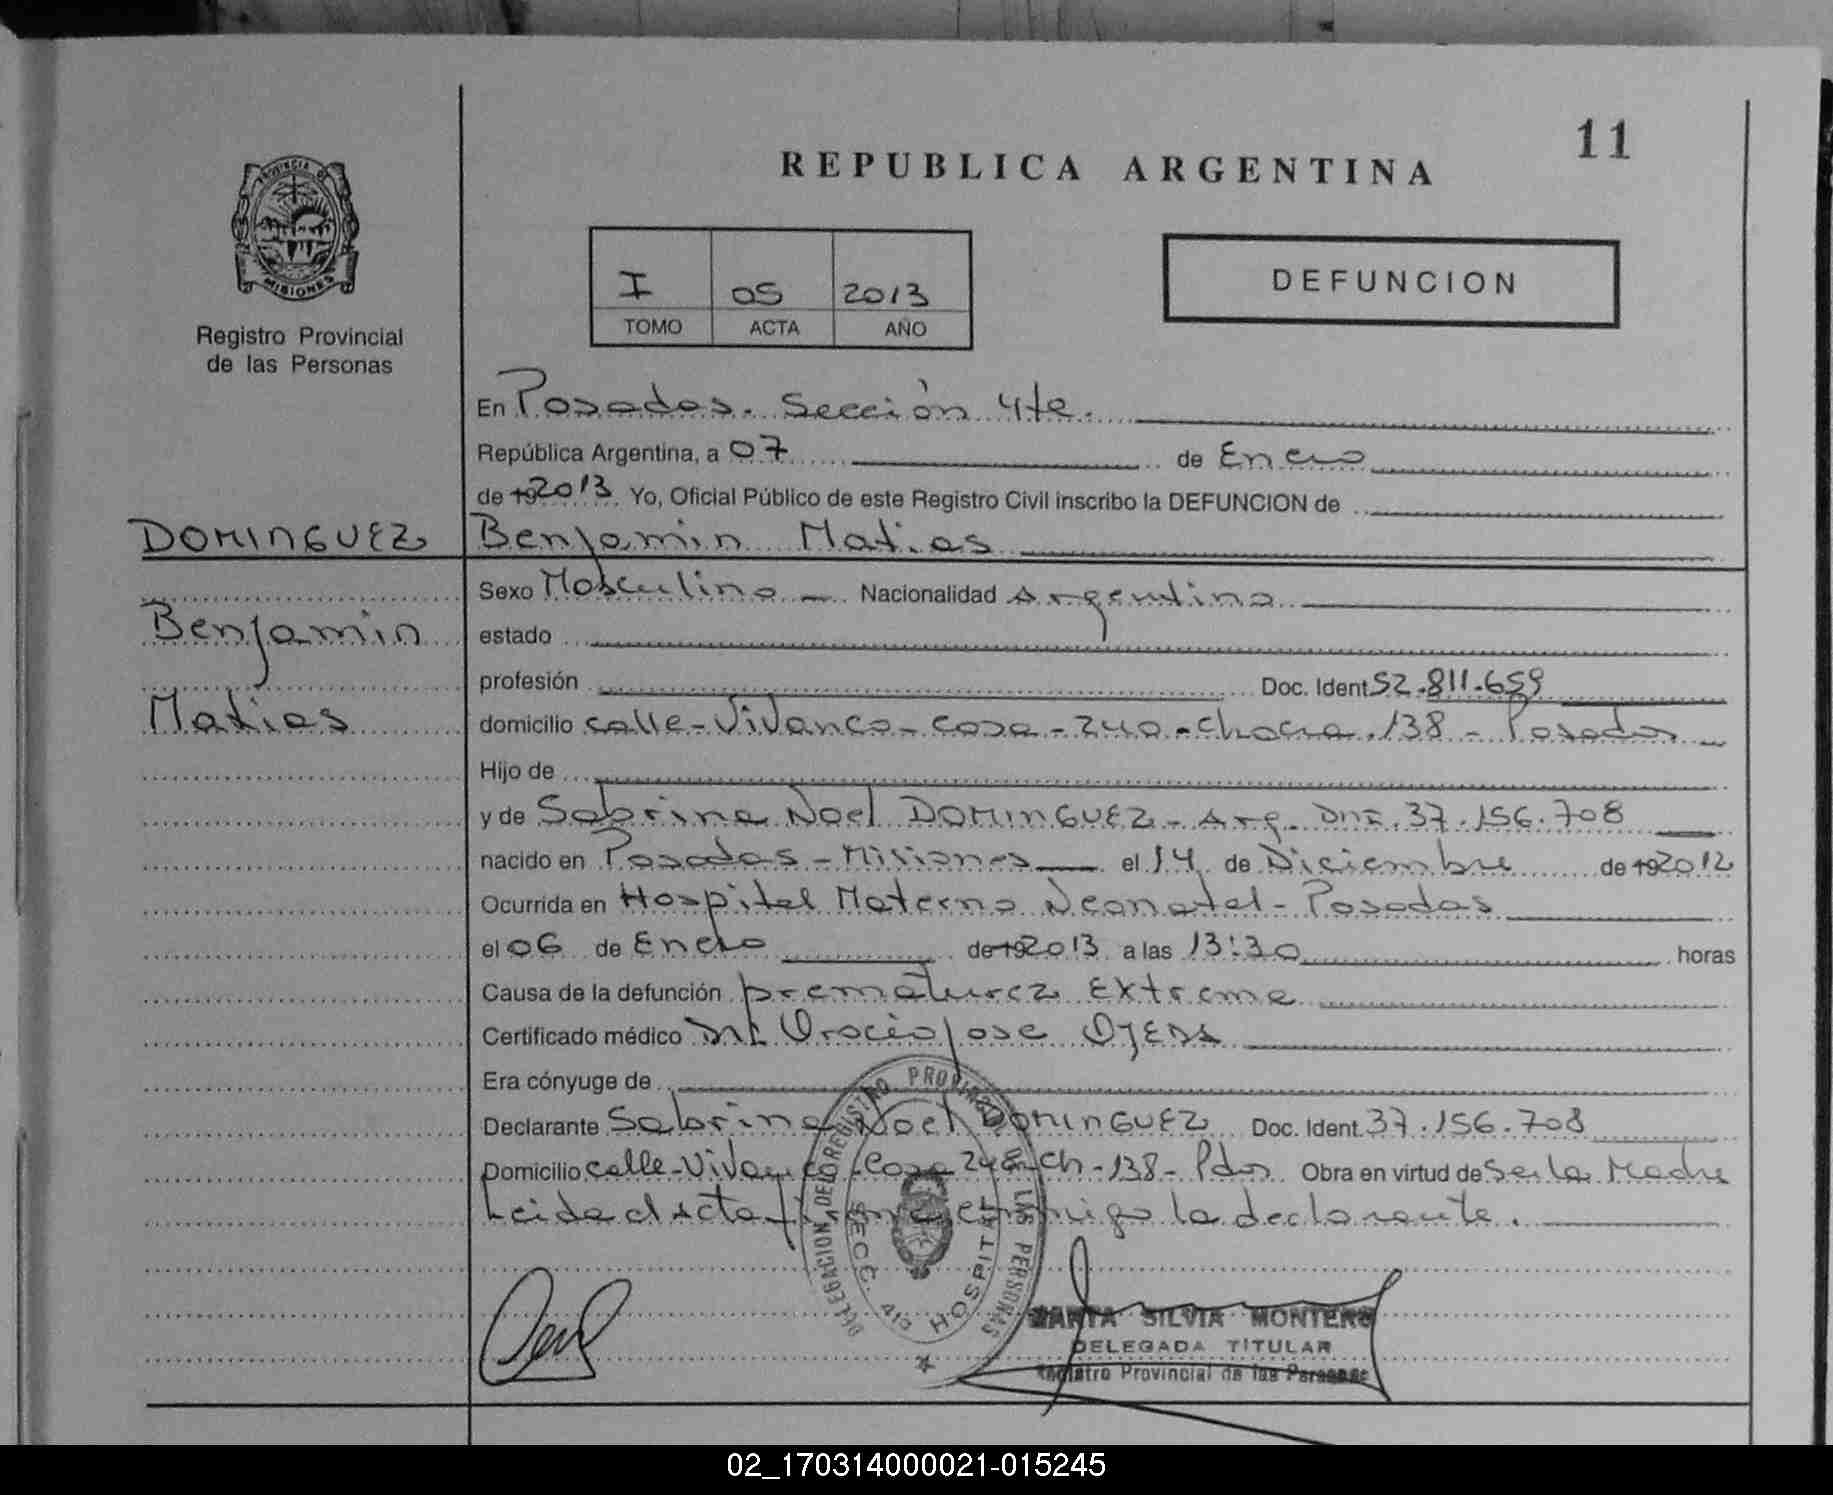 11
REPUBLICA ARGENTINA
PROVINCIA DE
MISIONES
Registro Provincial
de las Personas
I 05 2013
TOMO ACTA AÑO
DEFUNCION
En Posadas. Sección 4ta.
República Argentina, a 07 de Enero
de 19 2013 Yo, Oficial Público de este Registro Civil inscribo la DEFUNCION de
DOMINGUEZ Benjamin Matias
Sexo Masculino Nacionalidad Argentina
Benjamin
estado
profesión Doc. Ident. 52.811.659
Matias
domicilio calle-Vivanco-casa-240-chacra.138-Posadas
Hijo de
y de Sabrina Noel DOMINGUEZ-Arg. DNI.37.156.708
nacido en Posadas-Misiones el 14 de Diciembre de 19 2012
Ocurrida en Hospital Materno Neonatal-Posadas
el 06 de Enero de 19 2013 a las 13:30 horas
Causa de la defunción prematurez Extrema
Certificado médico Jose OJEDA
Era cónyuge de
Declarante Sabrina Noel DOMINGUEZ Doc. Ident. 37.156.708
Domicilio calle-Vivanco-Casa 240-Ch-138-Pdas Obra en virtud de Ser la Madre
Leida el Acta firma conmigo la declarante.
DELEGACION DEL REGISTRO PROVINCIAL DE LAS PERSONAS
SECC. 4ta HOSPITAL
MARTA SILVIA MONTERO
DELEGADA TITULAR
Registro Provincial de las Personas
02_170314000021-015245